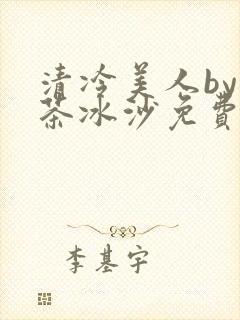 清冷美人by
茶冰沙免费
李基宇